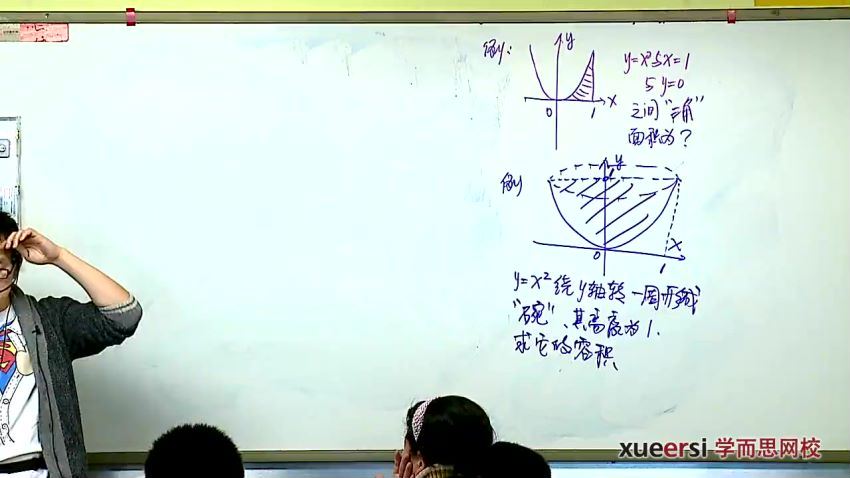 例:
y
y=x²与x=1
与y=0
x
0
1
之间"三角"
面积为?
例
y
1
x
0
1
y=x²绕y轴转一周形成
"碗"、其高度为1.
求它的容积
xueersi 学而思网校